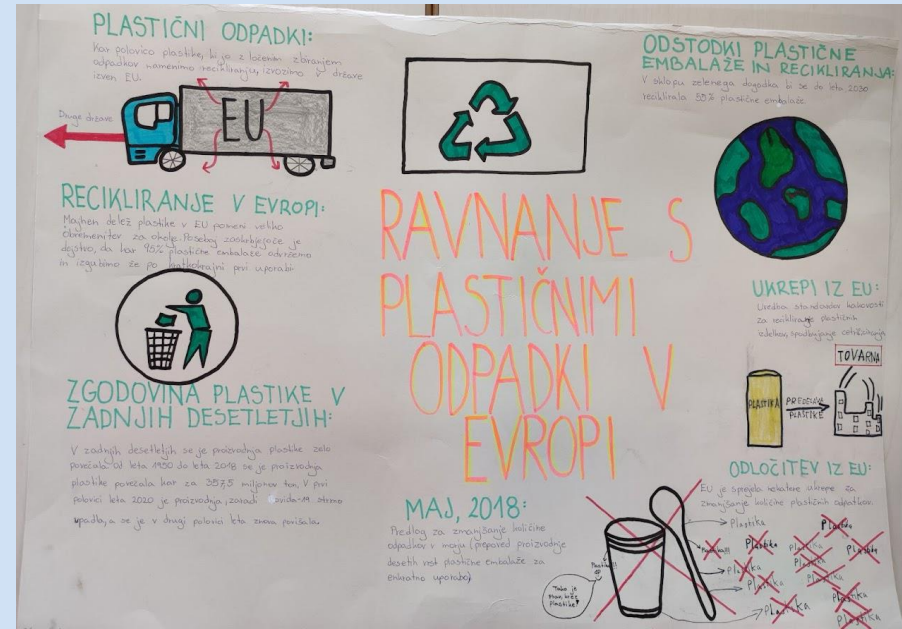 PLASTIČNI ODPADKI:
Kar polovico plastike, ki jo z ločenim zbiranjem
odpadkov namenimo recikliranju, izvozimo v države
izven EU.
Druge države
EU
RECIKLIRANJE V EVROPI:
Majhen delež plastike v EU pomeni veliko
obremenitev za okolje. Posebej zaskrbljujoče je
dejstvo, da kar 95% plastične embalaže odvržemo
in izgubimo že po kratkotrajni prvi uporabi
ZGODOVINA PLASTIKE V
ZADNJIH DESETLETJIH:
V zadnjih desetletjih se je proizvodnja plastike zelo
povečala. Od leta 1950 do leta 2018 se je proizvodnja
plastike povečala kar za 357,5 milijonov ton. V prvi
polovici leta 2020 je proizvodnja, zaradi strmo
upadla, a se je v drugi polovici leta znova povišala.
RAVNANJE S
PLASTIČNIMI
ODPADKI V
EVROPI
MAJ, 2018:
Predlog za zmanjšanje količine
odpadkov v morju (prepoved proizvodnje
desetih vrst plastične embalaže za
enkratno uporabo)
ODSTODKI PLASTIČNE
EMBALAŽE IN RECIKLIRANJA:
V sklopu zelenega dogodka bi se do leta 2030
reciklirala 55% plastične embalaže.
UKREPI IZ EU:
Uredba standarda kakovosti
za recikliranje plastičnih
izdelkov, spodbujanje
TOVARNA
PLASTIKA
PREDELAVA
PLASTIKE
ODLOČITEV IZ EU:
EU je sprejela nekatere ukrepe za
zmanjšanje količine plastičnih odpadkov.
Plastika
Plastika
Plastika
Plastika
Plastika
Plastika
Plastika
Plastika
Plastika
Plastika
Plastika
Plastika
Tako je
manj
plastike!